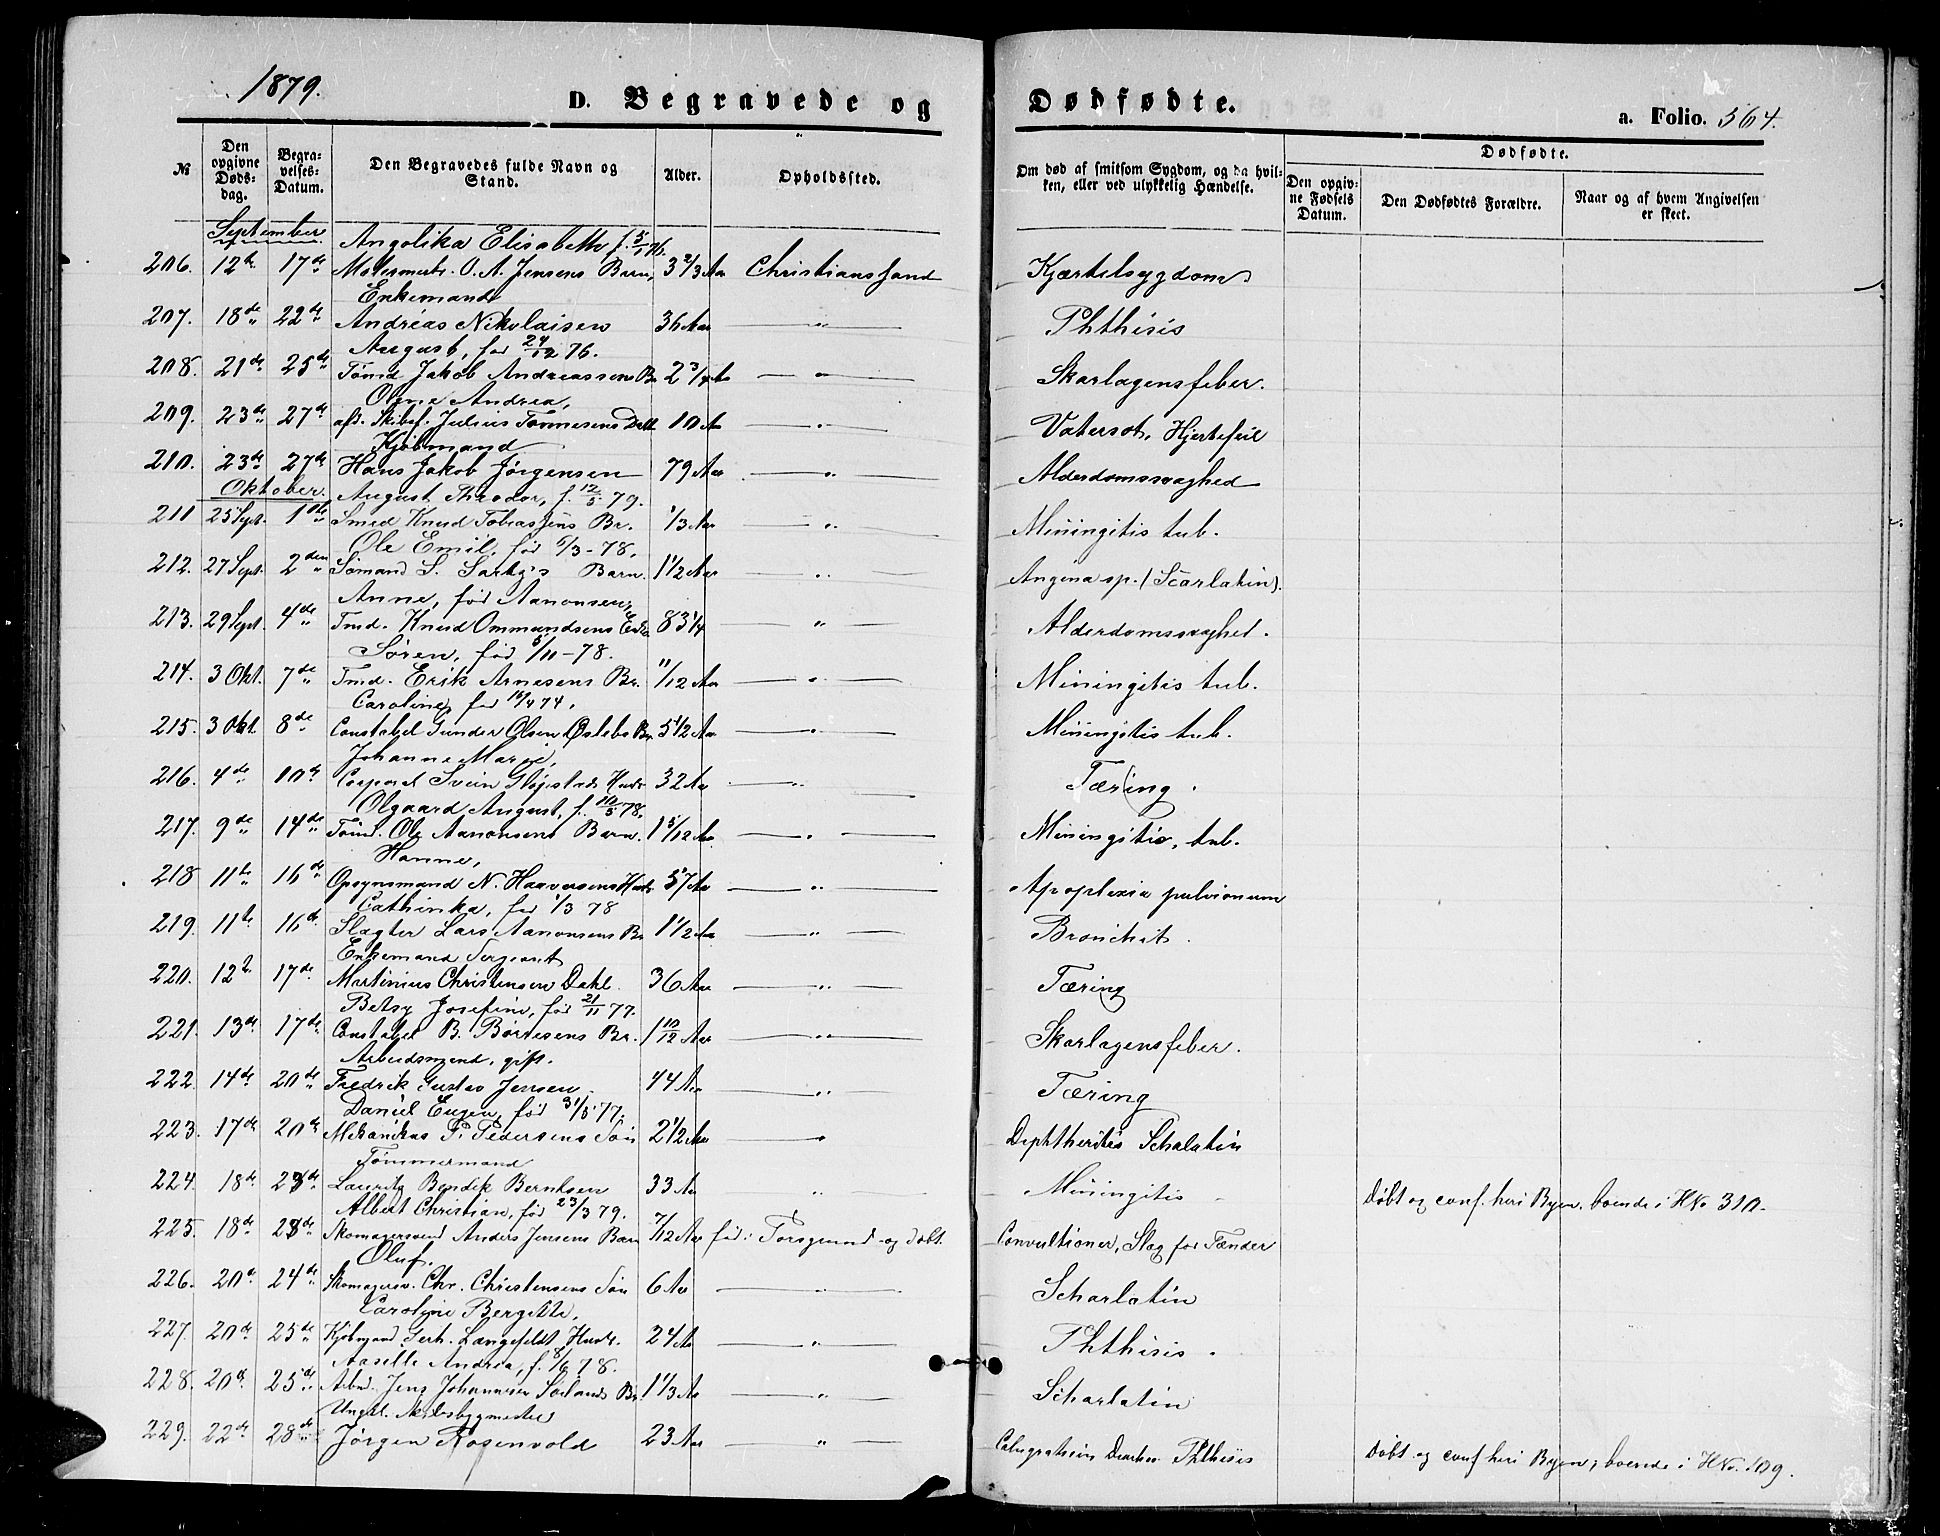 1879.
D. Begravede og Dødfødte.
a. Folio. 364.
№ | Den opgivne Døds-dag. | Begra-velses-Datum. | Den Begravedes fulde Navn og Stand. | Alder. | Opholdssted. | Om død af smitsom Sygdom, og da hvil-ken, eller ved ulykkelig Hændelse. | Dødfødte.
Den opgiv-ne Fødsels Datum. | Den Dødfødtes Forældre. | Naar og af hvem Angivelsen er skeet.
September
Angolika Elisabeth f. 5/1 76.
206. 12te 17de Malermestr. O. A. Jensens Barn, 3 2/3 Aar Christianssand Kjærtelsygdom
Enkemand
207. 18de 22de Andreas Nikolaisen 36 Aar — " — Phthisis
August, før 24/12 76.
208. 21de 25de Tømd Jakob Andreassens Br. 2 3/4 Aar — " — Skarlagensfeber.
Andrea,
209. 23de 27de afd. Skibsf. Julius Tønnesens Datt 10 Aar — " — Vatersot, Hjertefeil
Kjøbmand
210. 23de 27de Hans Jakob Jørgensen 79 Aar — " — Alderdomssvaghed
Oktober. August Theodor, f. 12/5 79.
211 25 Sept. 1ste Smed Knud Tobiassens Br. 1/3 Aar — " — Miningitis tub.
Ole Emil, før 5/3 - 78.
212. 27 Sept. 2den Sømand S. Barn. 1 1/2 Aar — " — Angina sp. (Scarlatin).
Anne, før Aanonsen,
213. 29 Sept. 4de Tmd. Knud Ommundsens Enke 83 1/4 — " — Alderdomssvaghed.
Søren, før 5/11 - 78.
214. 3 Okt. 7de Tmd. Erik Arnesens Br. 11/12 Aar — " — Miningitis tub.
Caroline, før 16/4 74.
215. 3 Okt. 8de Constabel Gunder Olsen Øslebs Br. 5 1/2 Aar — " — Miningitis tub.
Johanne Marie,
216. 4de 10de Corporal Svein Hustr 32 Aar — " — Tæring.
Olgaard August, f. 10/5 78.
217. 9de 14de Tømd. Ole Aanonsens Barn. 1 5/12 Aar — " — Miningitis, tub.
Hanne,
218 11te 16de Opsynsmand N. Haaversens Hustr 57 Aar — " — Apoplexia pulmonum
Cathinka, før 1/3 78
219. 11te 16de Slagter Lars Aanonsens Br 1 1/2 Aar — " — Bronchit.
Enkemand Sergeant
220. 12te 17de Martinius Christensen Dahl. 36 Aar — " — Tæring
Betsy Josefine, før 21/11 77.
221. 13de 17de Constabel B. Børresens Br. 1 10/12 Aar — " — Skarlagensfeber.
Arbeidsmand, gift.
222. 14de 20de Fredrik Gustav Jensen 44 Aar — " — Tæring
Daniel Eugen, før 31/5 77.
223. 17de 20de Mekanikus P. Pedersens Søn 2 1/2 Aar — " — Diphtheritis Schalatin
Tømmermand
224. 18de 23de Lauritz Bendik Berntsen 33 Aar — " — Miningitis Døbt og conf. heri Byen, boende i HNo 310.
Albert Christian, før 23/3 79.
225. 18de 23de Skomagersvend Anders Jensens Barn 7/12 Aar fød i Torsgrund og døbt. Convultioner, Slag for Tænder
Oluf.
226. 20de 24de Skomagersv. Chr. Christensens Søn 6 Aar — " — Scharlatin
Caroline Bergitte,
227. 20de 25de Kjøbmand Gerh. Langefeldt, Hustr. 24 Aar — " — Phthisis.
Aaselle Andrea, f. 8/6 78.
228. 20de 25de Arbd. Jens Johannesen Sørlands Br. 1 1/3 Aar — " — Scharlatin
Ungkl. Skibsbygmester
229. 22de 28de Jørgen Rosenvold 23 Aar — " — Phthisis Døbt og conf. heri Byen, boende i HNo. 109.